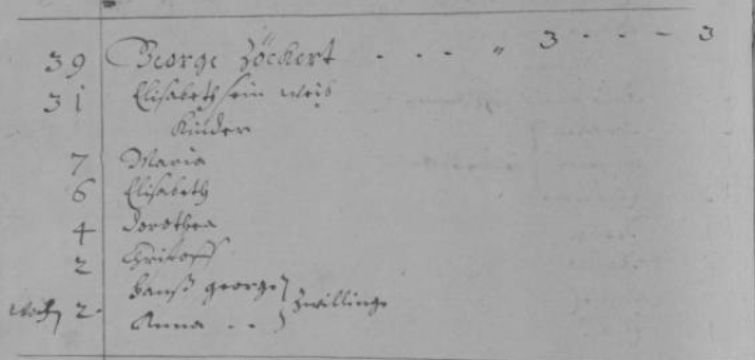 39 George Zöckert . - - " 3 - - - 3
31 Elisabeth sein weib
Kinder
7 Maria
6 Elisabeth
4 Dorothea
2 Christoff
Hanß George
woch 2. Zwillinge
Anna . .